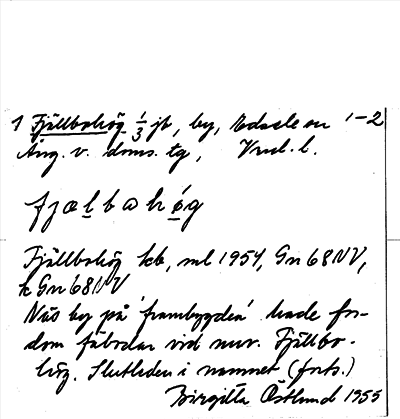 1 Fjällbohög 1/3 jb, by, Edsele sn 1-2
Ång. v. doms. tg, Vnl. l.
fjælbahøg
Fjällbohög kb, ml 1954, Gn 68NV,
k Gn 68NV
Näs by på 'frambygden' hade for-
dom fäbodar vid nuv. Fjällbo-
hög. Slutleden i namnet (forts.)
Birgitta Östlund 1955